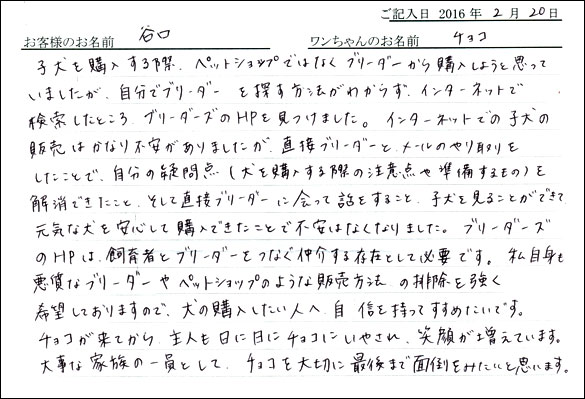 ご記入日 2016年2月20日
お客様のお名前 谷口 ワンちゃんのお名前 チョコ
子犬を購入する際、ペットショップではなくブリーダーから購入しようと思って
いましたが、自分でブリーダーを探す方法がわからず、インターネットで
検索したところ、ブリーダーズのHPを見つけました。インターネットでの子犬の
販売はかなり不安がありましたが、直接ブリーダーとメールのやり取りを
したことで、自分の疑問点(犬を購入する際の注意点や準備するもの)を
解消できたこと、そして直接ブリーダーに会って話をすること、子犬を見ることができて
元気な犬を安心して購入できたことで不安はなくなりました。ブリーダーズ
のHPは、飼育者とブリーダーをつなぐ仲介する存在として必要です。私自身も
悪質なブリーダーやペットショップのような販売方法の排除を強く
希望しておりますので、犬の購入したい人へ自信を持ってすすめたいです。
チョコが来てから、主人も日に日にチョコにいやされ、笑顔が増えています。
大事な家族の一員として、チョコを大切に最後まで面倒をみたいと思います。